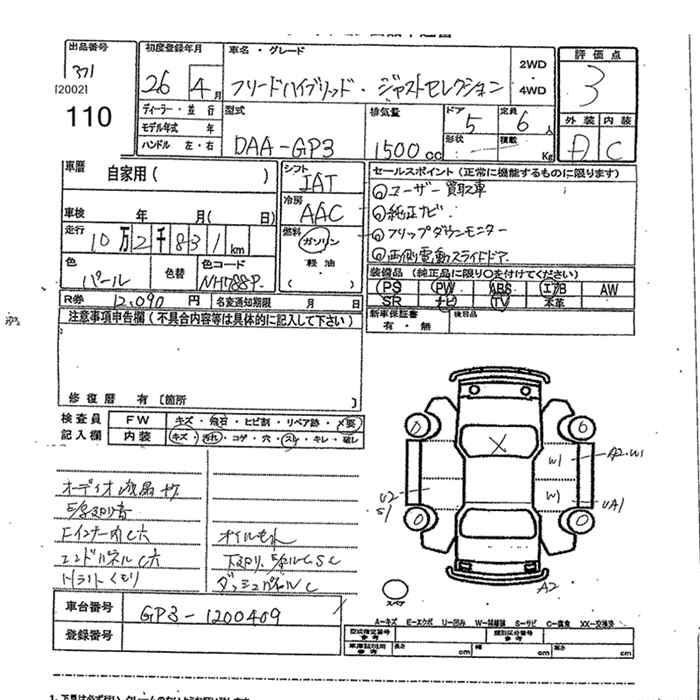 出品番号 初度登録年月 車名・グレード 2WD・4WD 評価点
371 26年 4月 フリードハイブリッド・ジャストセレクション 3
[2002]
110
ディーラー・並行 型式 排気量 ドア 定員 外装 内装
モデル年式 年 DAA-GP3 1500cc 5 6人 D C
ハンドル 左・右 形状 積載 Kg
車歴 自家用( ) シフト IAT セールスポイント(正常に機能するものに限ります)
冷房 AAC ①ユーザー買取車
車検 年 月( 日) ②純正ナビ
走行 10万2千831km 燃料 ガソリン・軽油 ( ) ③フリップダウンモニター
④両側電動スライドドア
色 パール 色替 色コード NH788P 装備品(純正品に限り○を付けてください)
PS PW ABS エアB AW
R券 12,090円 名変通知期限 月 日 SR ナビ TV 本革
注意事項申告欄(不具合内容等は具体的に記入して下さい) 新車保証書 有・無 後日品
修復歴 有〔箇所 〕
検査員 FW キズ・飛石・ヒビ割・リペア跡・X要
記入欄 内装 キズ・汚れ・コゲ・穴・スレ・キレ・破レ
X
W1 A2.W1
U2 S1 W1 UA1
オーディオ液晶
オイルもれ
エンドパネル
下回り
ダッシュパネル C
A2
スペア
車台番号 GP3-1200409
登録番号
A-キズ E-エクボ U-凹み W-補修跡 S-サビ C-腐食 XX-交換済
型式指定番号 参考 類別区分番号 参考
車庫証明用 参考 長さ cm 幅 cm 高さ cm